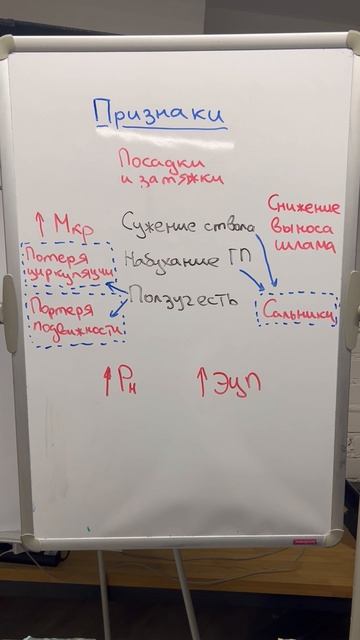 Признаки
Посадки
и затяжки
Снижение
выноса
шлама
↑ Мкр
Сужение ствола
Потеря
циркуляции
Набухание ГП
Ползучесть
Портеря
подвижности
Сальники
↑Рн
↑Эцп